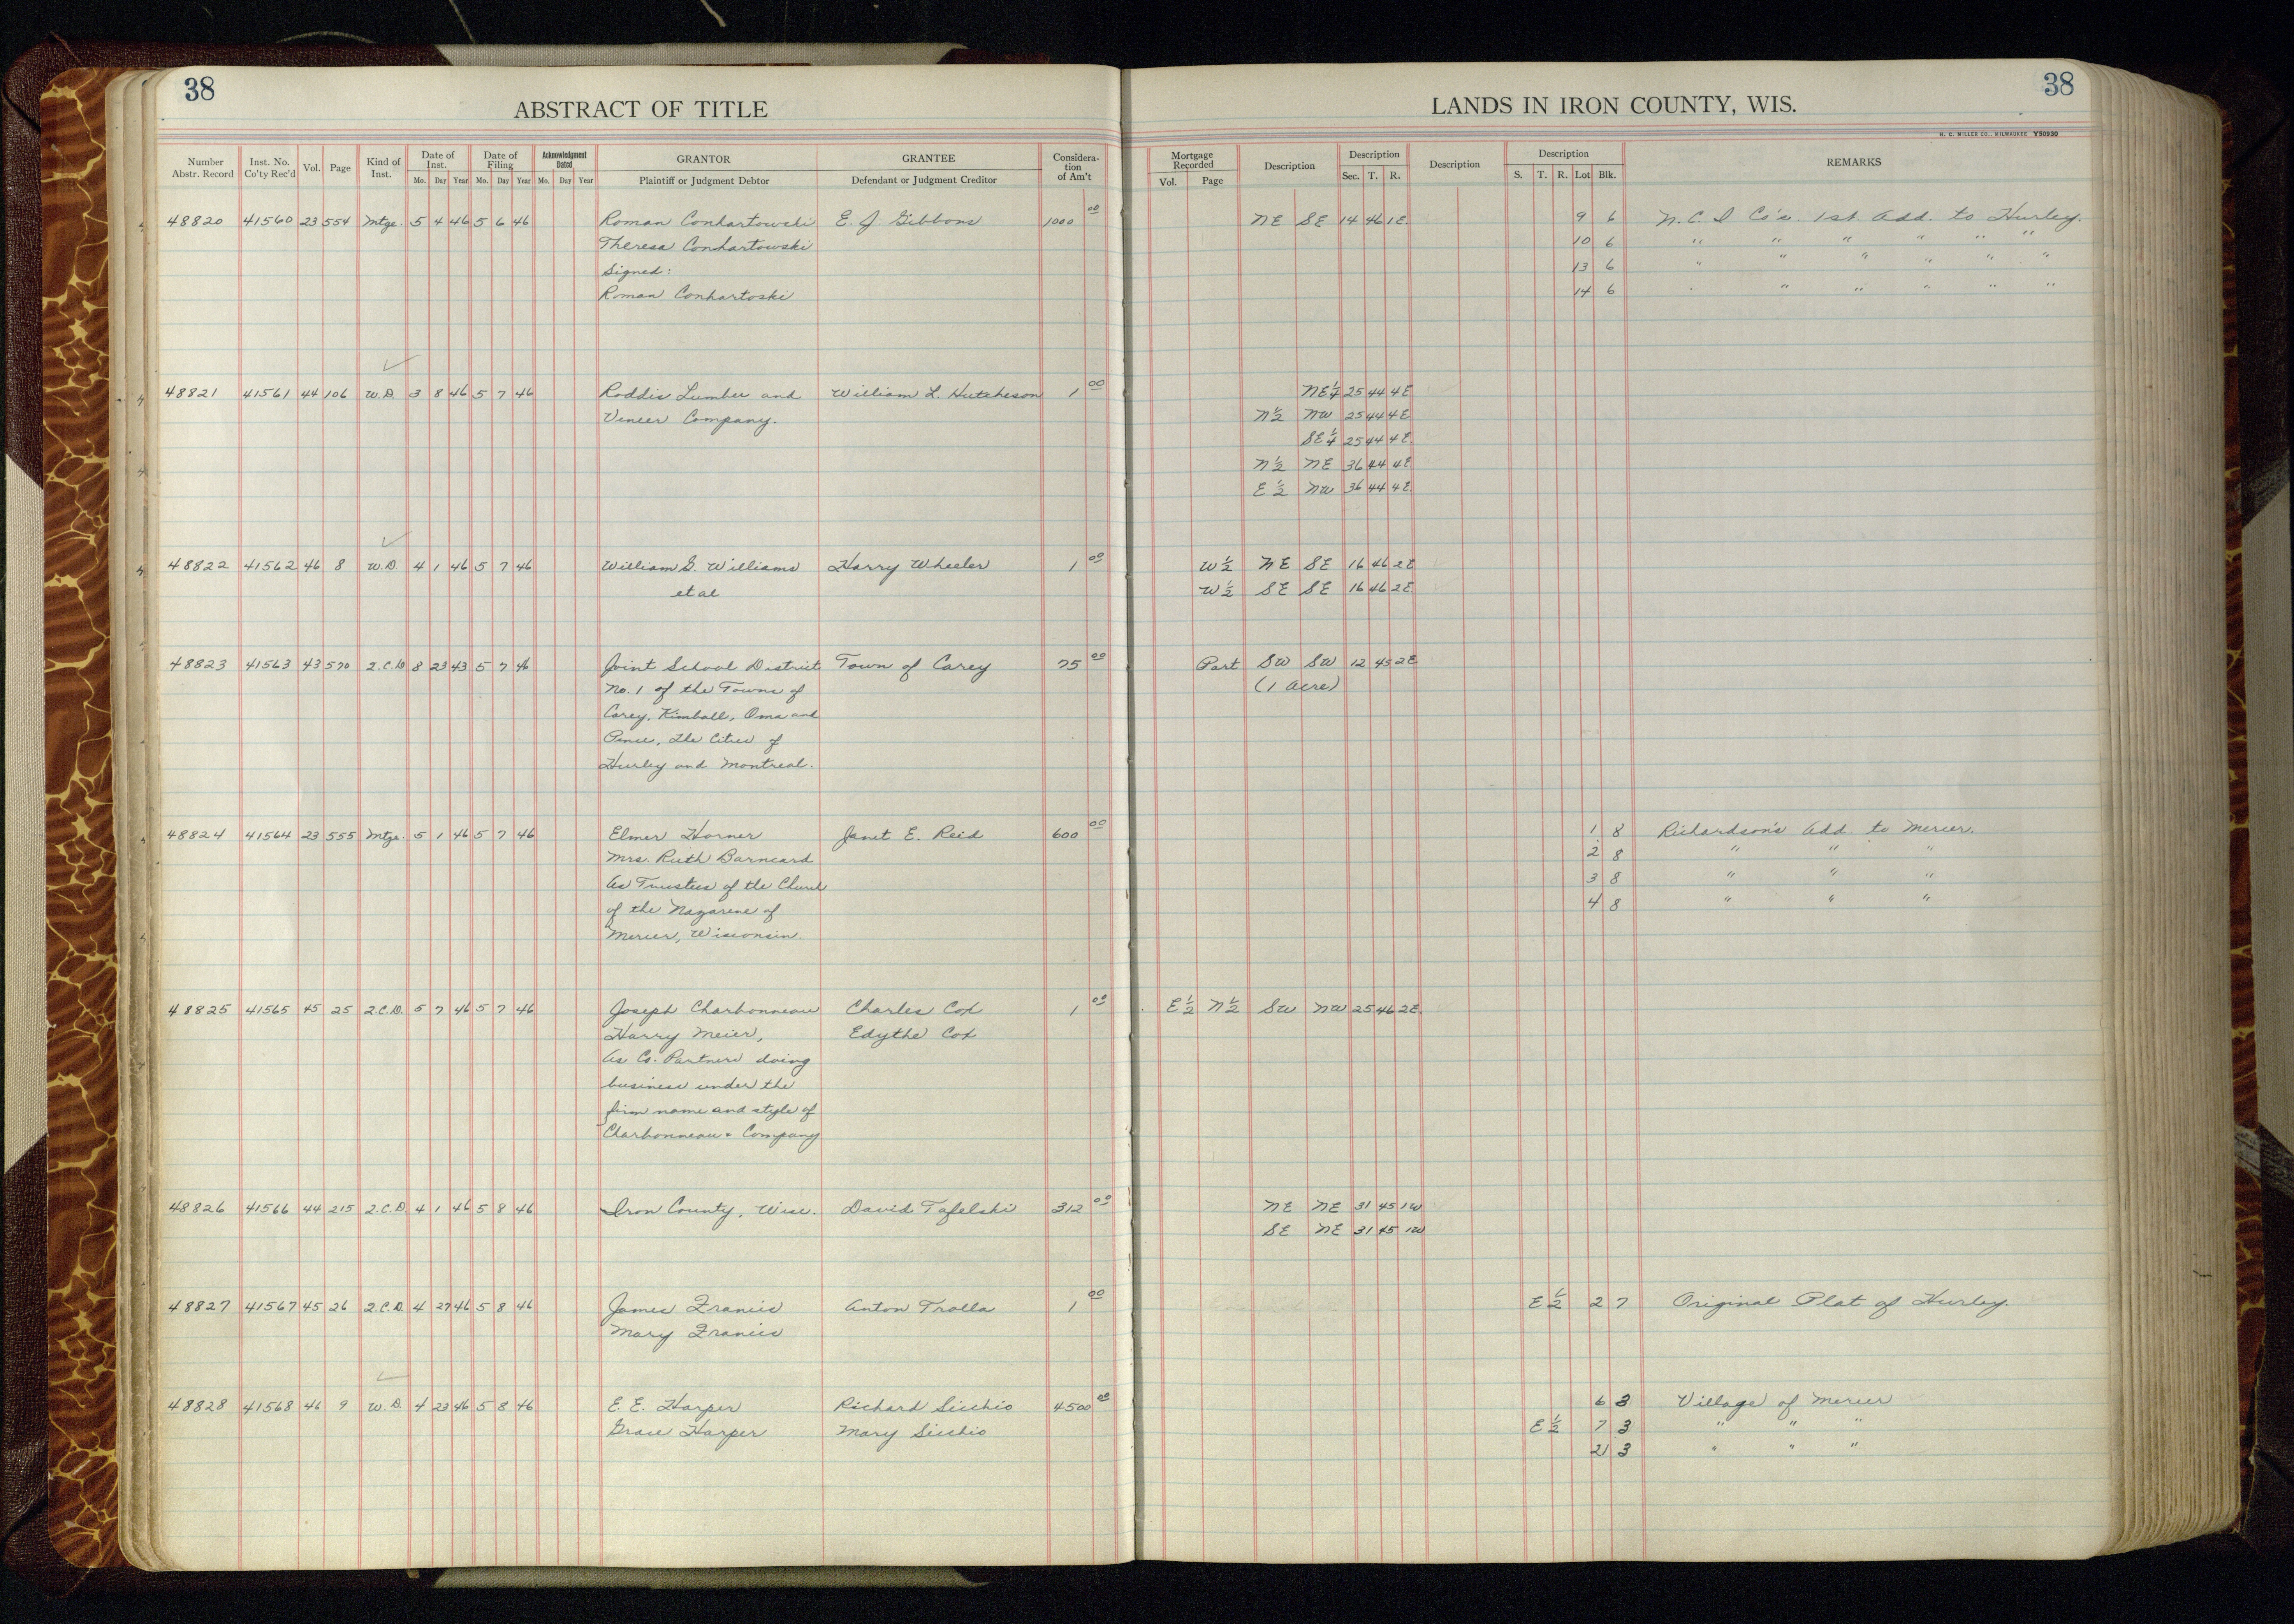 38
38
ABSTRACT OF TITLE
LANDS IN IRON COUNTY, WIS.
H. C. MILLER CO., MILWAUKEE Y50930
Number Abstr. Record | Inst. No. Co'ty Rec'd | Vol. | Page | Kind of Inst. | Date of Inst. | Date of Filing | Acknowledgment Dated | GRANTOR | GRANTEE | Considera-tion of Am't | Mortgage Recorded | Description | Description | Description | Description | REMARKS
Mo. Day Year Mo. Day Year Mo. Day Year | Plaintiff or Judgment Debtor | Defendant or Judgment Creditor | Vol. Page | Sec. T. R. | S. T. R. Lot Blk.
48820 41560 23 554 Mtge. 5 4 46 5 6 46 Roman Conhartowski E. J. Gibbons 1000 00 NE SE 14 46 1E. 9 6 N. C. I Co's. 1st. Add. to Hurley.
Theresa Conhartowski 10 6 " " " " " "
Signed: 13 6 " " " " " "
Roman Conhartoski 14 6 " " " " " "
48821 41561 44 106 W.D. 3 8 46 5 7 46 Roddis Lumber and William L. Hutcheson 1 00 NE¼ 25 44 4E
Veneer Company. N½ NW 25 44 4E
SE¼ 25 44 4E.
N½ NE 36 44 4E
E½ NW 36 44 4E.
48822 41562 46 8 W.D. 4 1 46 5 7 46 William G. Williams Harry Wheeler 1 00 W½ NE SE 16 46 2E
et al W½ SE SE 16 46 2E.
48823 41563 43 570 2.C.D 8 23 43 5 7 46 Joint School District Town of Carey 75 00 Part SW SW 12 45 2E
No. 1 of the Towns of (1 acre)
Carey, Kimball, Oma and
Pence, the Cities of
Hurley and Montreal.
48824 41564 23 555 Mtge. 5 1 46 5 7 46 Elmer Horner Janet E. Reid 600 00 1 8 Richardson's Add. to Mercer.
Mrs. Ruth Barneard 2 8 " " "
As Trustees of the Church 3 8 " " "
of the Nazarene of 4 8 " " "
Mercer, Wisconsin.
48825 41565 45 25 2.C.D. 5 7 46 5 7 46 Joseph Charbonneau Charles Cox 1 00 E½ N½ SW NW 25 46 2E.
Harry Meier, Edythe Cox
As Co. Partners doing
business under the
firm name and style of
Charbonneau & Company
48826 41566 44 215 2.C.D. 4 1 46 5 8 46 Iron County, Wisc. David Tafelski 312 00 NE NE 31 45 1W
SE NE 31 45 1W
48827 41567 45 26 2.C.D. 4 27 46 5 8 46 James Francis Anton Trolla 1 00 E½ 2 7 Original Plat of Hurley.
Mary Francis
48828 41568 46 9 W.D. 4 23 46 5 8 46 E. E. Harper Richard Sicchio 4500 00 6 3 Village of Mercer
Grace Harper Mary Sicchio E½ 7 3 " " "
21 3 " " "